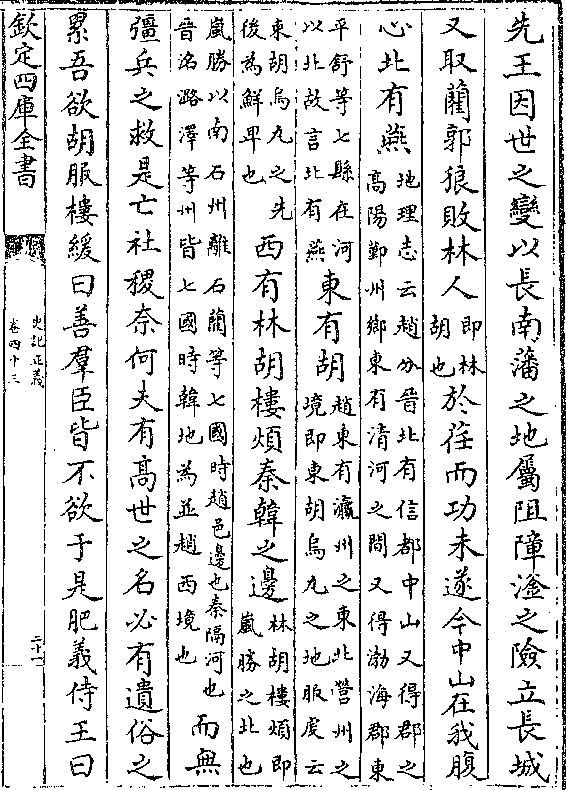 先王因世之變以長南藩之地屬阻障滏之險立長城
又取藺郭狼敗林人即林胡也於荏而功未遂今中山在我腹
心北有燕地理志云趙分晉北有信都中山又得郡之高陽鄚州鄉東有清河之間又得渤海郡東
平舒等七縣在河以北故言北有燕東有胡趙東有瀛州之東北營州之境即東胡烏丸之地服虔云
東胡烏丸之先後為鮮卑也西有林胡樓煩秦韓之邊林胡樓煩即嵐勝之北也
嵐勝以南石州離石藺等七國時趙邑邊也秦隔河也晉洺潞澤等州皆七國時韓地為並趙西境也而無
彊兵之救是亡社稷奈何夫有髙世之名必有遺俗之
累吾欲胡服樓緩曰善羣臣皆不欲于是肥義侍王曰
欽定四庫全書
史記正義
卷四十三
二十一